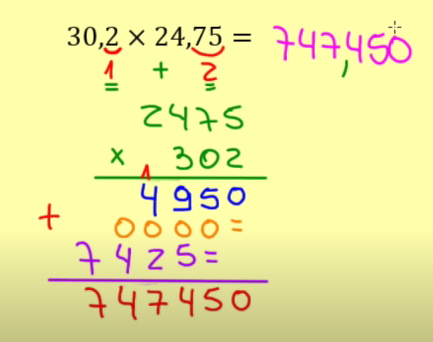 30,2 × 24,75 = 747,450
1 + 2
2475
× 302
1
4950
+ 0000=
7425=
747450